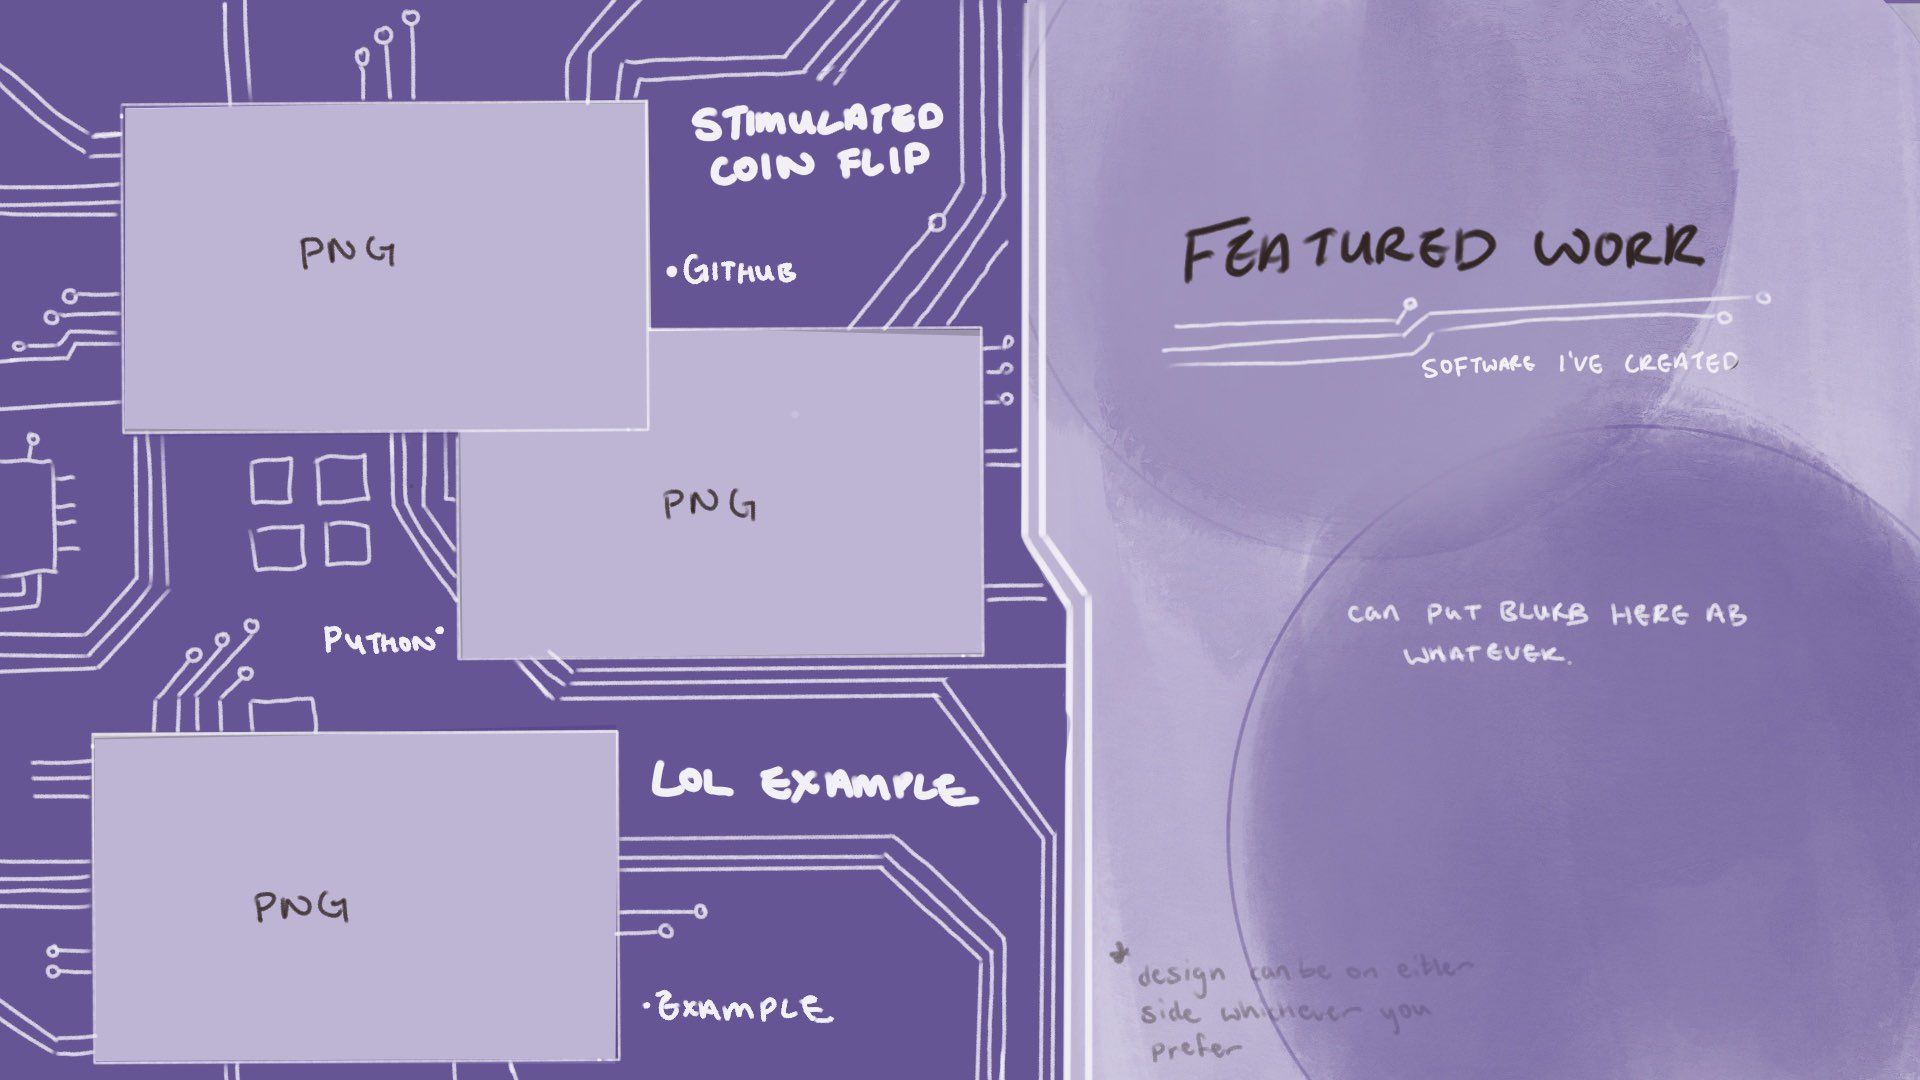 STIMULATED
COIN FLIP
PNG
•GITHUB
PNG
PYTHON•
LOL EXAMPLE
PNG
•EXAMPLE
FEATURED WORK
SOFTWARE I'VE CREATED
CAN PUT BLURB HERE AB
WHATEVER.
* design can be on either
side whichever you
prefer